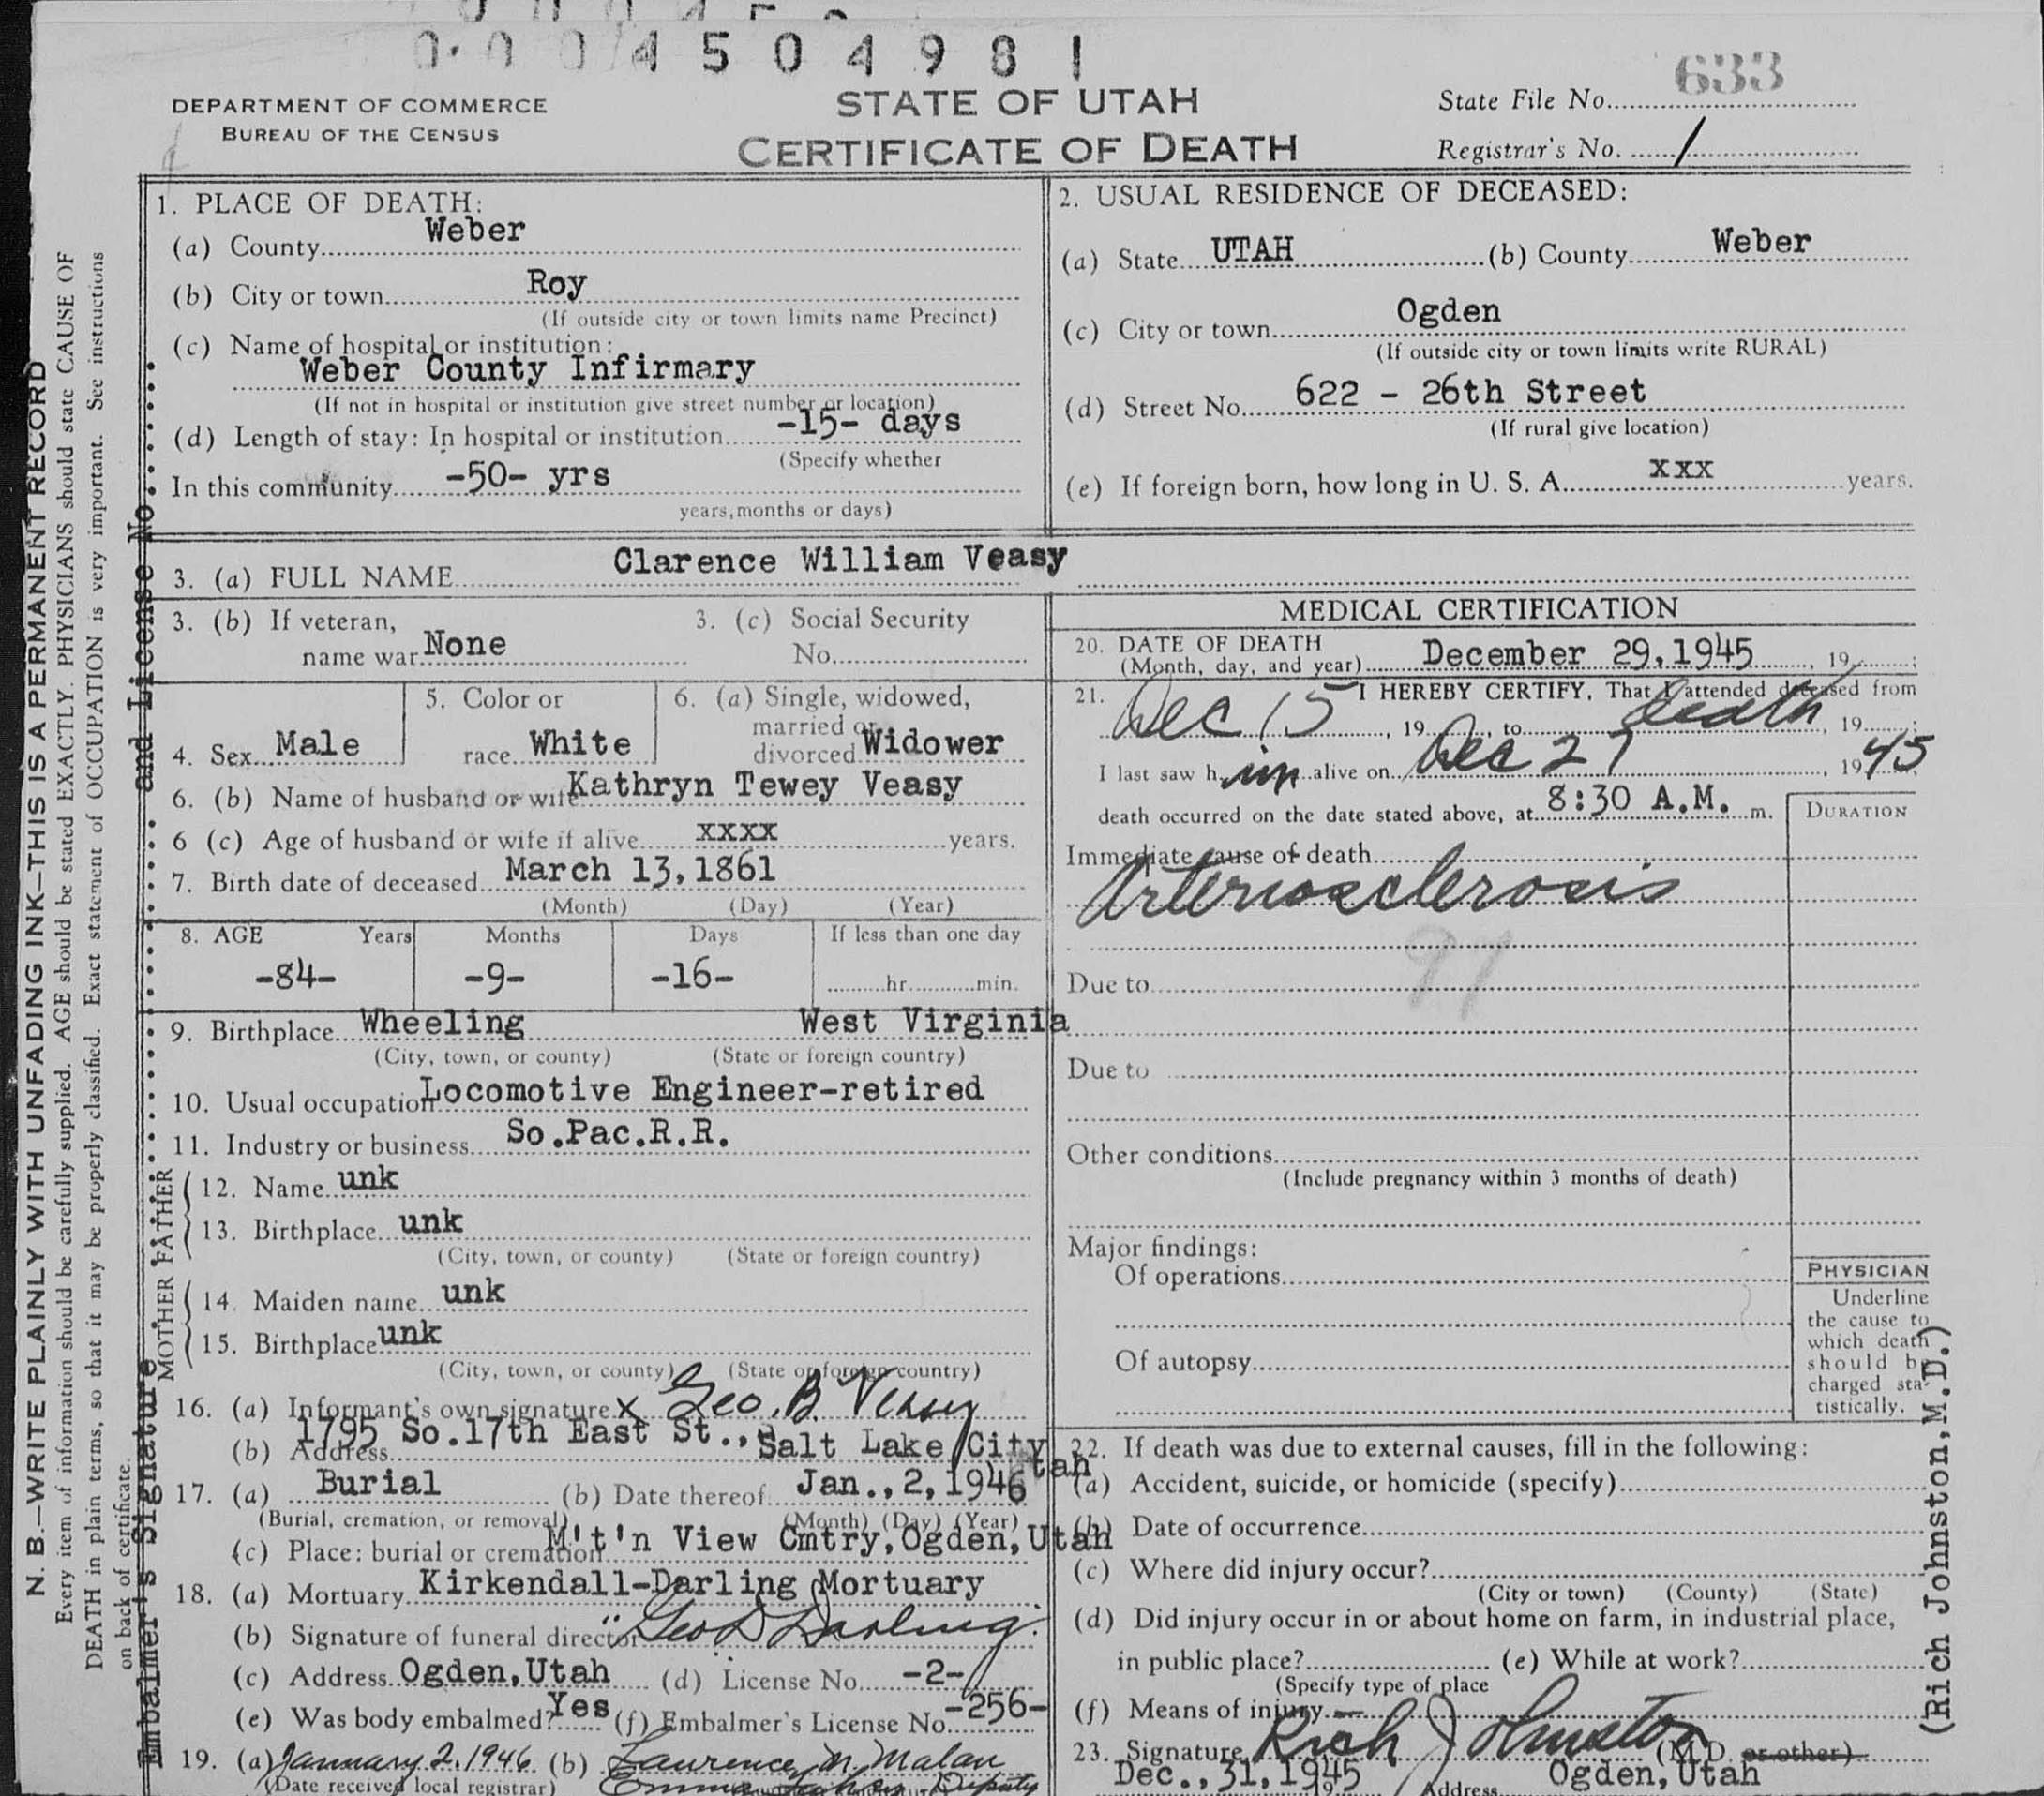 0004504981
DEPARTMENT OF COMMERCE
BUREAU OF THE CENSUS
STATE OF UTAH
CERTIFICATE OF DEATH
State File No. 633
Registrar's No. 1
1. PLACE OF DEATH:
(a) County Weber
(b) City or town Roy
(If outside city or town limits name Precinct)
(c) Name of hospital or institution:
Weber County Infirmary
(If not in hospital or institution give street number or location)
(d) Length of stay: In hospital or institution -15- days
(Specify whether
In this community -50- yrs
years, months or days)
2. USUAL RESIDENCE OF DECEASED:
(a) State UTAH (b) County Weber
(c) City or town Ogden
(If outside city or town limits write RURAL)
(d) Street No. 622 - 26th Street
(If rural give location)
(e) If foreign born, how long in U. S. A. xxx years.
3. (a) FULL NAME Clarence William Veasy
3. (b) If veteran,
name war None
3. (c) Social Security
No.
4. Sex Male
5. Color or
race White
6. (a) Single, widowed,
married or
divorced Widower
6. (b) Name of husband or wife Kathryn Tewey Veasy
6 (c) Age of husband or wife if alive xxxx years.
7. Birth date of deceased March 13, 1861
(Month) (Day) (Year)
8. AGE Years Months Days If less than one day
-84- -9- -16- hr. min.
9. Birthplace Wheeling West Virginia
(City, town, or county) (State or foreign country)
10. Usual occupation Locomotive Engineer-retired
11. Industry or business So.Pac.R.R.
FATHER
12. Name unk
13. Birthplace unk
(City, town, or county) (State or foreign country)
MOTHER
14. Maiden name unk
15. Birthplace unk
(City, town, or county) (State or foreign country)
16. (a) Informant's own signature x Geo. B. Veasy
(b) Address 1795 So.17th East St., Salt Lake City
tah
17. (a) Burial (b) Date thereof Jan., 2, 1946
(Burial, cremation, or removal) (Month) (Day) (Year)
(c) Place: burial or cremation M't'n View Cmtry, Ogden, Utah
18. (a) Mortuary Kirkendall-Darling Mortuary
(b) Signature of funeral director Geo D Darling
(c) Address Ogden, Utah (d) License No. -2-
(e) Was body embalmed? Yes (f) Embalmer's License No. -256-
19. (a) January 2, 1946 (b) Lawrence N. Malan
(Date received local registrar) Emma Deputy
MEDICAL CERTIFICATION
20. DATE OF DEATH
(Month, day, and year) December 29, 1945, 19
21. I HEREBY CERTIFY, That I attended deceased from
Dec 15, 19 , to death, 19
I last saw him alive on Dec 27, 1945
death occurred on the date stated above, at 8:30 A.M. m.
DURATION
Immediate cause of death
Arteriosclerosis
97
Due to
Due to
Other conditions
(Include pregnancy within 3 months of death)
Major findings:
Of operations
Of autopsy
PHYSICIAN
Underline
the cause to
which death
should be
charged sta-
tistically.
22. If death was due to external causes, fill in the following:
(a) Accident, suicide, or homicide (specify)
(b) Date of occurrence
(c) Where did injury occur?
(City or town) (County) (State)
(d) Did injury occur in or about home on farm, in industrial place,
in public place? (e) While at work?
(Specify type of place
(f) Means of injury
23. Signature Rich Johnston (M.D. or other)
Dec., 31, 1945 19 Address Ogden, Utah
(Rich Johnston, M.D.)
N. B.—WRITE PLAINLY WITH UNFADING INK—THIS IS A PERMANENT RECORD
Every item of information should be carefully supplied. AGE should be stated EXACTLY. PHYSICIANS should state CAUSE OF
DEATH in plain terms, so that it may be properly classified. Exact statement of OCCUPATION is very important. See instructions
on back of certificate.
Embalmer's Signature and License No.